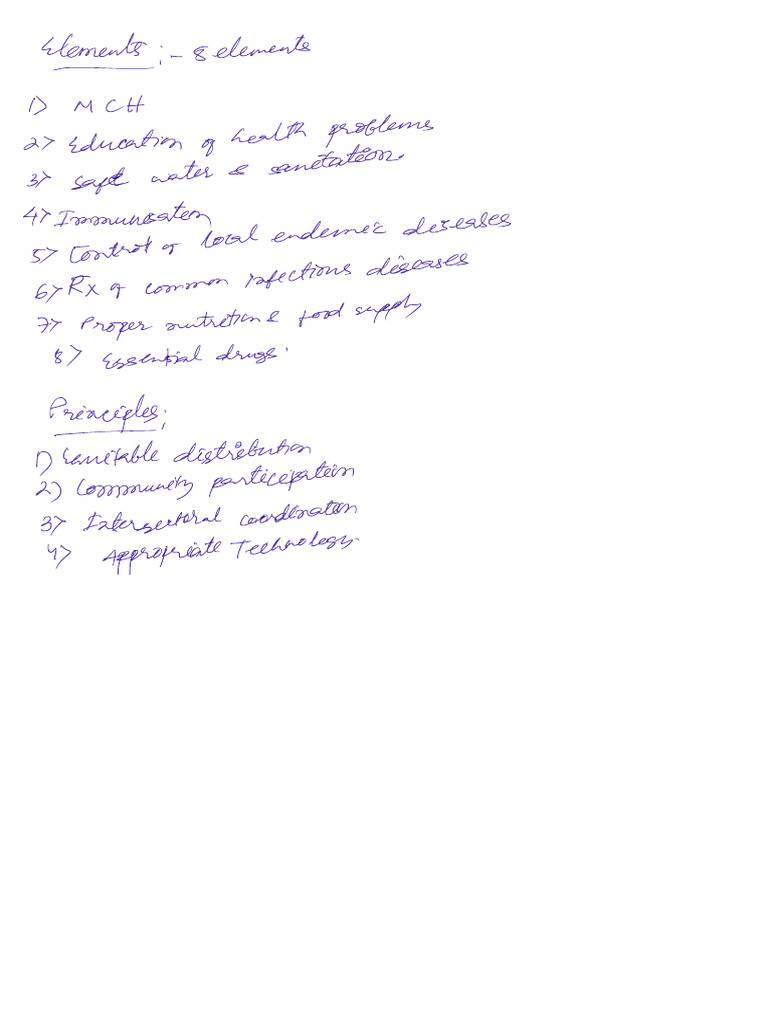 Elements :- 8 elements
1> MCH
2> Education of health problems
3> Safe water & sanitation.
4> Immunisation
5> Control of local endemic diseases
6> Rx of common infectious diseases
7> Proper nutrition & food supply
8> Essential drugs.
Principles;
1) Equitable distribution
2) Community participation
3> Intersectoral coordination
4> Appropriate Technology.